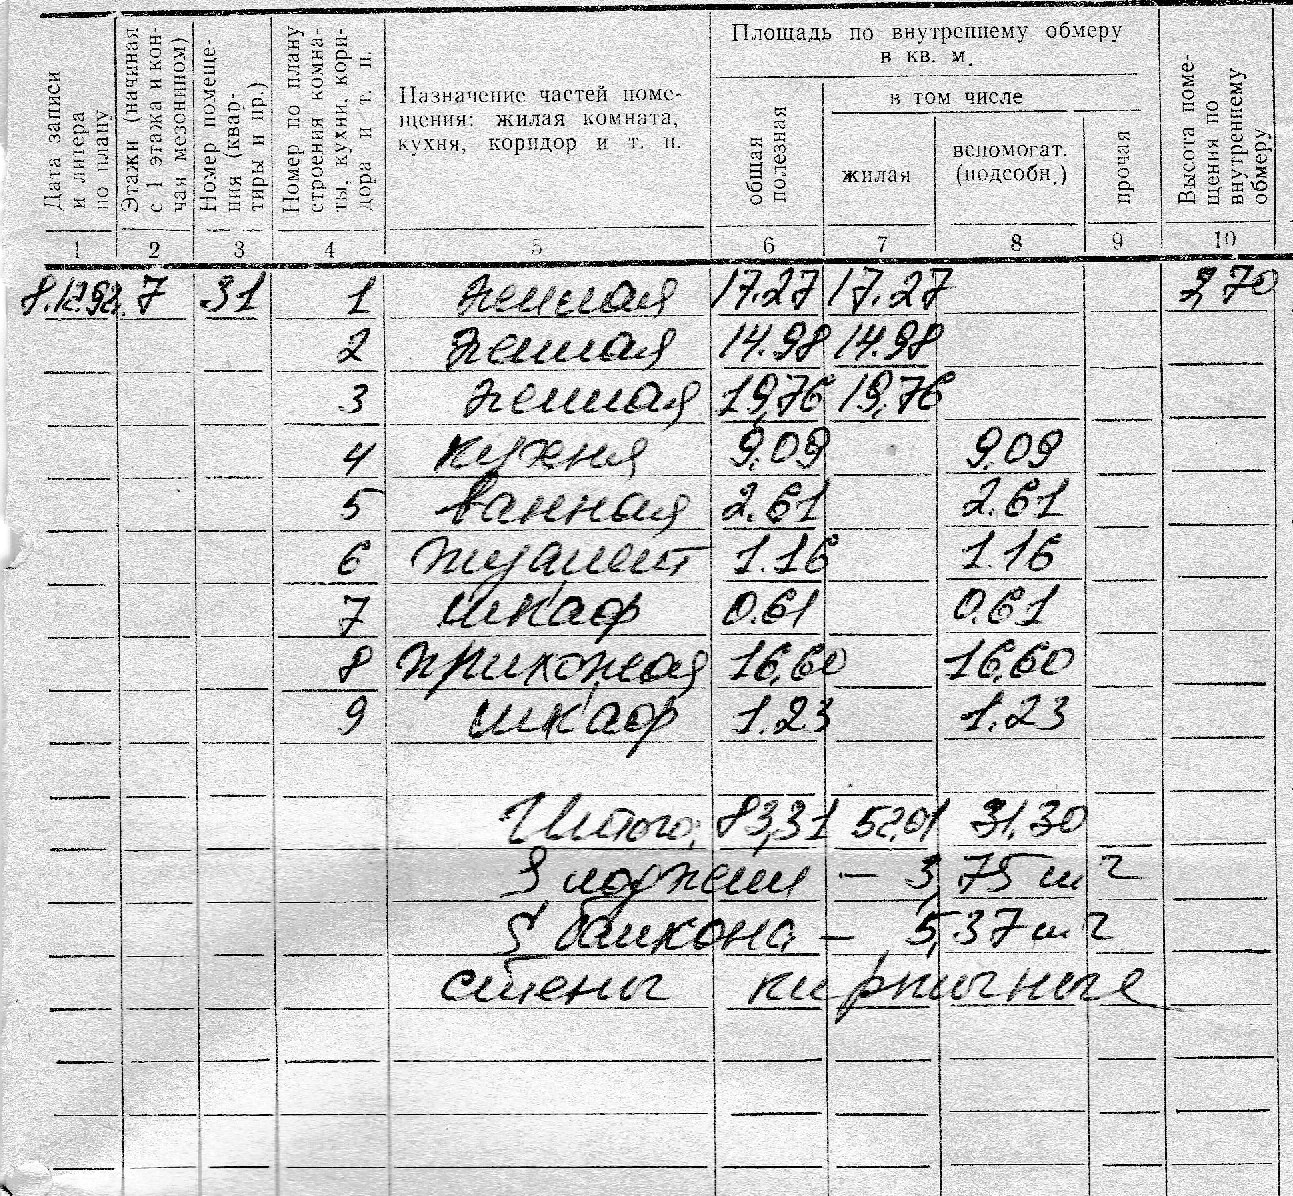 Дата записи и литера по плану
Этажи (начиная с 1 этажа и кончая мезонином)
Номер помещения (квартиры и пр.)
Номер по плану строения комнаты, кухни, коридора и т. п.
Назначение частей поме-
щения: жилая комната,
кухня, коридор и т. п.
Площадь по внутреннему обмеру
в кв. м.
общая полезная
в том числе
жилая
вспомогат.
(подсобн.)
прочая
Высота поме-
щения по
внутреннему
обмеру
1 2 3 4 5 6 7 8 9 10
8.12.92. 7 31 1 жилая 17.27 17.27 2,70
2 жилая 14.98 14.98
3 жилая 19,76 19,76
4 кухня 9,09 9,09
5 ванная 2.61 2.61
6 туалет 1.16 1.16
7 шкаф 0.61 0.61
8 прихожая 16,60 16,60
9 шкаф 1.23 1.23
Итого: 83,31 52,01 31,30
S лоджии – 3,75 м2
S балкона – 5,37 м2
стены кирпичные